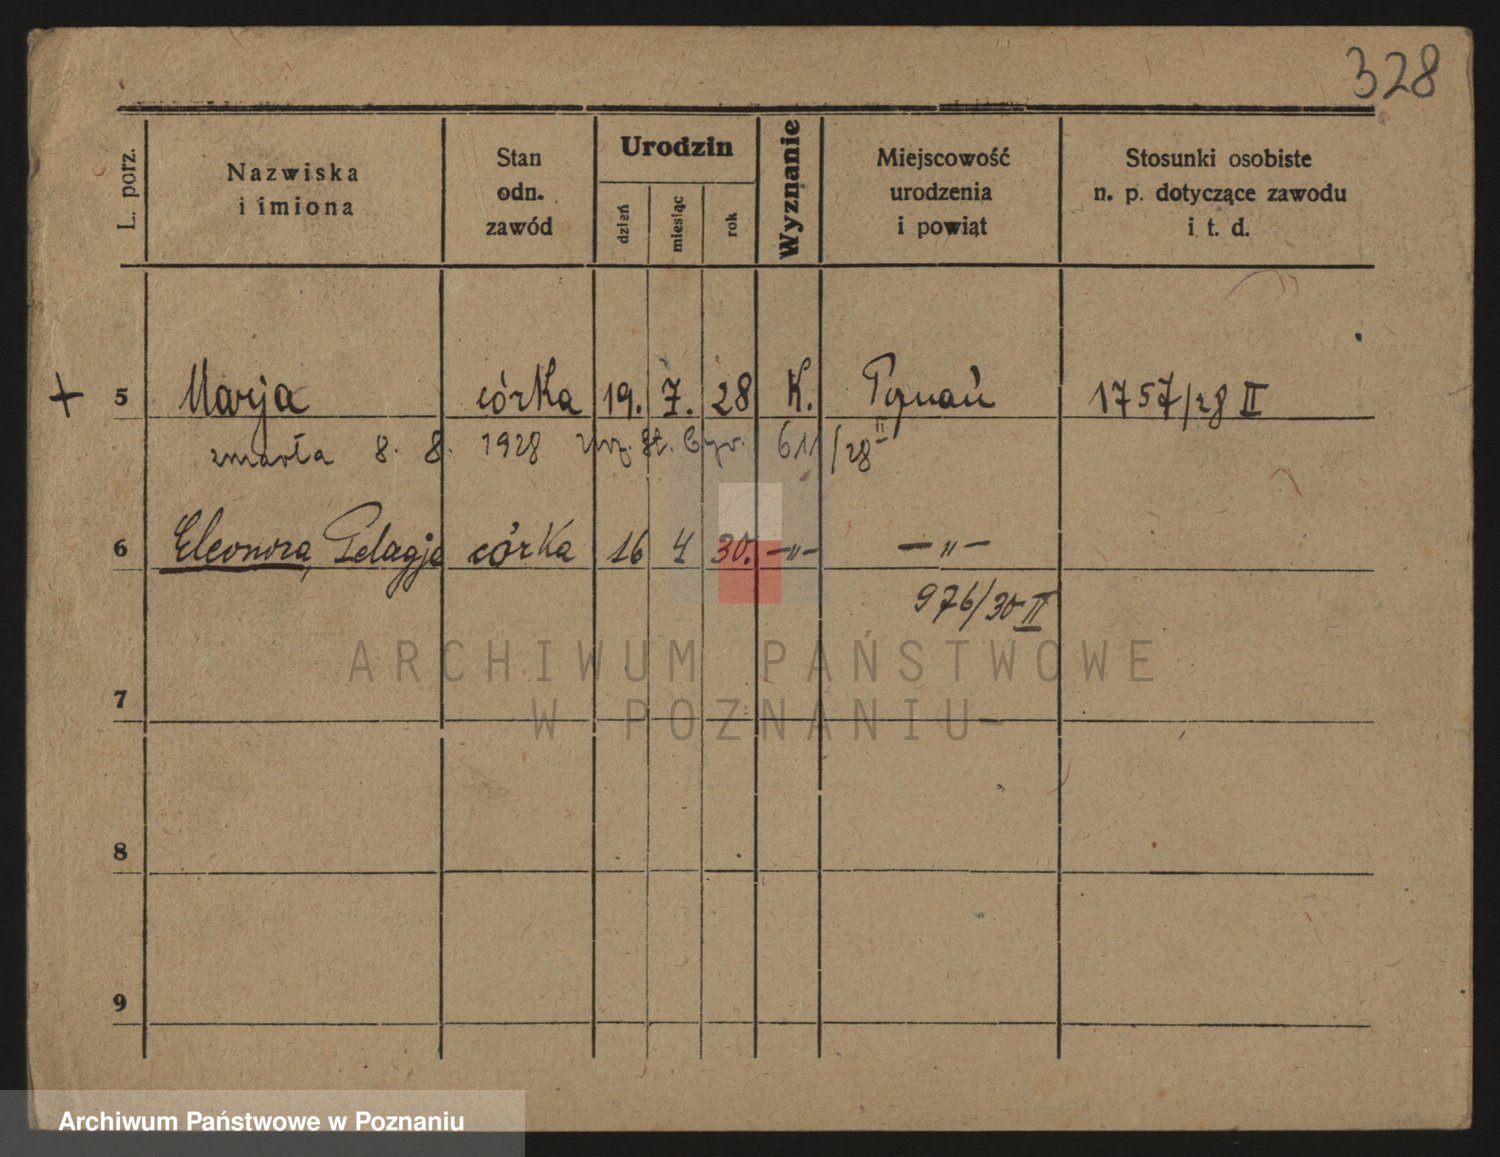 328
L. porz.
Nazwiska
i imiona
Stan
odn.
zawód
Urodzin
dzień
miesiąc
rok
Wyznanie
Miejscowość
urodzenia
i powiąt
Stosunki osobiste
n. p. dotyczące zawodu
i t. d.
+ 5 Marja córka 19. 7. 28 K. Poznań 1757/28 II
zmarła 8. 8. 1928 urz. St. Cyw. 611/28 II
6 Eleonora, Pelagja córka 16 4 30. -"- -"-
976/30 II
ARCHIWUM PAŃSTWOWE
W POZNANIU
7
8
9
Archiwum Państwowe w Poznaniu